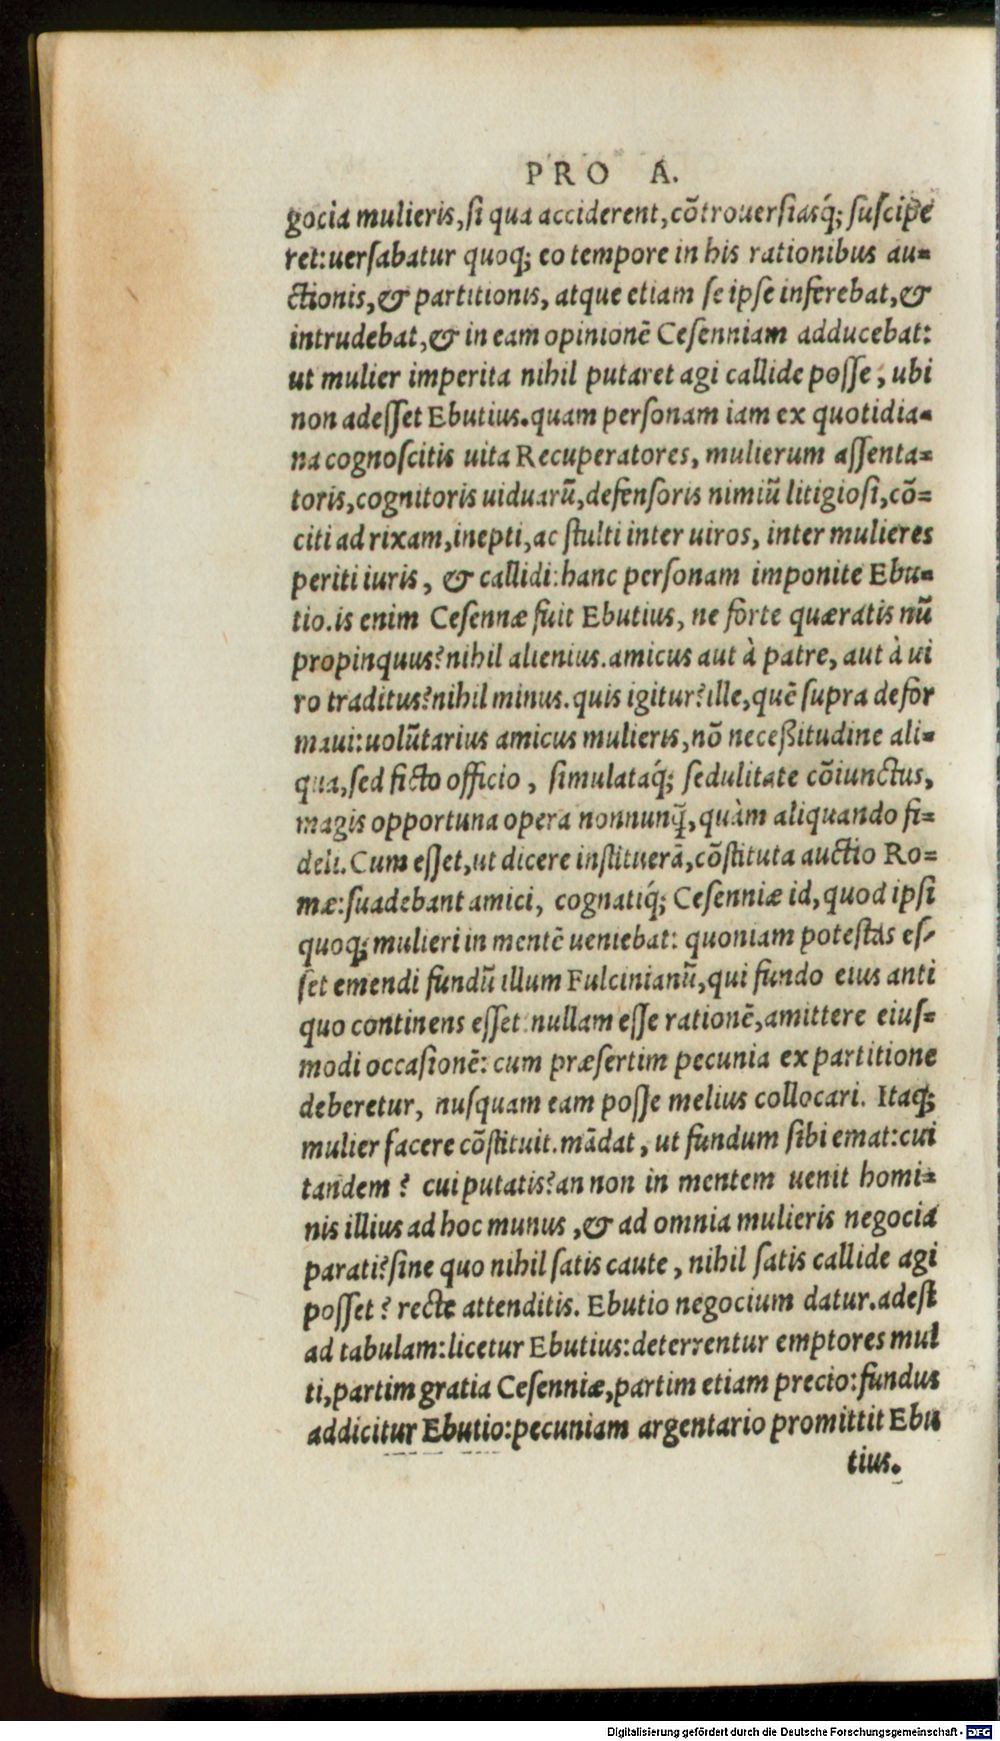 PRO A.
gocia mulieris, ſi qua acciderent, cõtrouerſiasq́; ſuſcipe
ret: uerſabatur quoq; eo tempore in his rationibus au=
ctionis, & partitionis, atque etiam ſe ipſe inferebat, &
intrudebat, & in eam opinionẽ Ceſenniam adducebat:
ut mulier imperita nihil putaret agi callide poſſe, ubi
non adeſſet Ebutius. quam perſonam iam ex quotidia=
na cognoſcitis uita Recuperatores, mulierum aſſenta=
toris, cognitoris uiduarũ, defenſoris nimiũ litigioſi, cõ=
citi ad rixam, inepti, ac ſtulti inter uiros, inter mulieres
periti iuris, & callidi: hanc perſonam imponite Ebu=
tio. is enim Ceſennæ fuit Ebutius, ne forte quæratis nũ
propinquus? nihil alienius. amicus aut à patre, aut à ui
ro traditus? nihil minus. quis igitur? ille, quẽ ſupra defor
maui: uolũtarius amicus mulieris, nõ neceßitudine ali=
qua, ſed ficto officio, ſimulataq́; ſedulitate cõiunctus,
magis opportuna opera nonnunq̃, quàm aliquando fi=
deli. Cum eſſet, ut dicere inſtituerã, cõſtituta auctio Ro=
mæ: ſuadebant amici, cognatiq́; Ceſenniæ id, quod ipſi
quoq; mulieri in mentẽ ueniebat: quoniam poteſtas eſ-
ſet emendi fundũ illum Fulcinianũ, qui fundo eius anti
quo continens eſſet: nullam eſſe rationẽ, amittere eiuſ=
modi occaſionẽ: cum præſertim pecunia ex partitione
deberetur, nuſquam eam poſſe melius collocari. Itaq;
mulier facere cõſtituit. mãdat, ut fundum ſibi emat: cui
tandem? cui putatis? an non in mentem uenit homi=
nis illius ad hoc munus, & ad omnia mulieris negocia
parati? ſine quo nihil ſatis caute, nihil ſatis callide agi
poſſet? recte attenditis. Ebutio negocium datur. adeſt
ad tabulam: licetur Ebutius: deterrentur emptores mul
ti, partim gratia Ceſenniæ, partim etiam precio: fundus
addicitur Ebutio: pecuniam argentario promittit Ebu
tius.
Digitalisierung gefördert durch die Deutsche Forschungsgemeinschaft - DFG